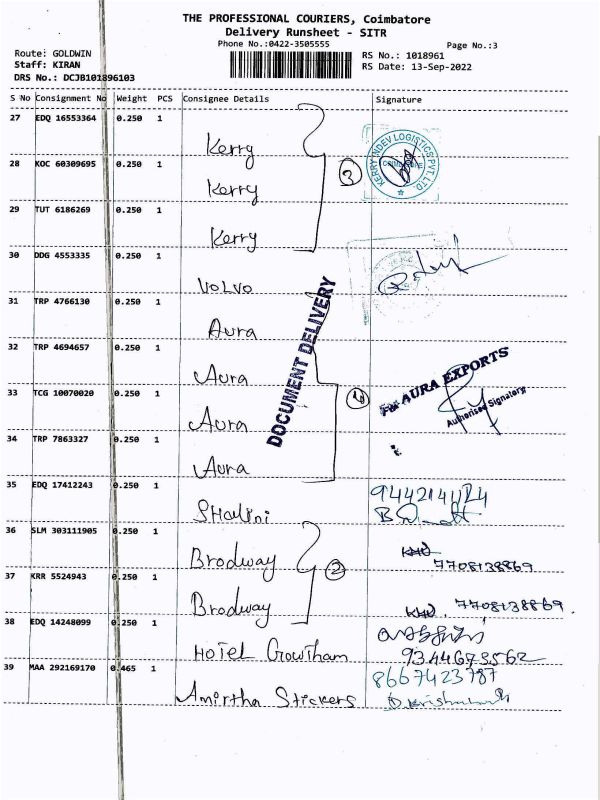 THE PROFESSIONAL COURIERS, Coimbatore
Delivery Runsheet - SITR
Phone No.:0422-3505555
Page No.:3
Route: GOLDWIN
Staff: KIRAN
DRS No.: DCJB101896103
RS No.: 1018961
RS Date: 13-Sep-2022
S No Consignment No Weight PCS Consignee Details Signature
27 EDQ 16553364 0.250 1
Kerry
28 KOC 60309695 0.250 1
Kerry
29 TUT 6186269 0.250 1
Kerry
3
KERRY INDEV LOGISTICS PVT. LTD
30 DDG 4553335 0.250 1
Volvo
31 TRP 4766130 0.250 1
Aura
32 TRP 4694657 0.250 1
Aura
33 TCG 10070020 0.250 1
Aura
34 TRP 7863327 0.250 1
Aura
4
DOCUMENT DELIVERY
For AURA EXPORTS
Authorised Signatory
35 EDQ 17412243 0.250 1
Shalini
36 SLM 303111905 0.250 1
Brodway
7708138869
37 KRR 5524943 0.250 1
Brodway
7708138869
2
38 EDQ 14248099 0.250 1
Hotel Gowtham
9344673562
39 MAA 292169170 0.465 1
Amirtha Stickers
8667423787